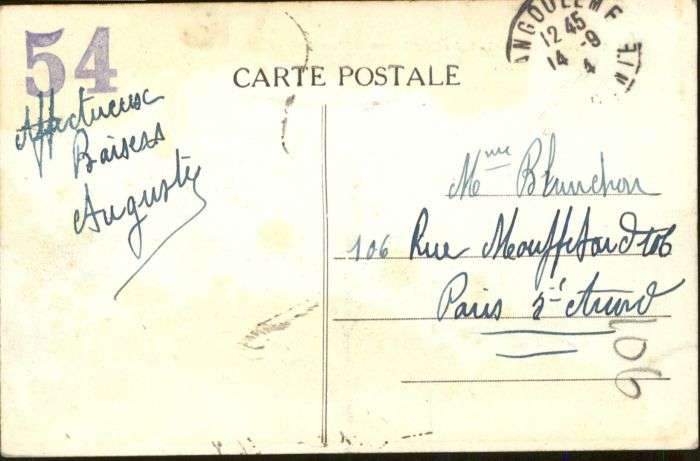 54
CARTE POSTALE
ANGOULEME
12 45
14 -9
4
Affectueux
Baisers
Auguste
Mme Blanchon
106 Rue Mouffetard 106
Paris 5è Arrond
106